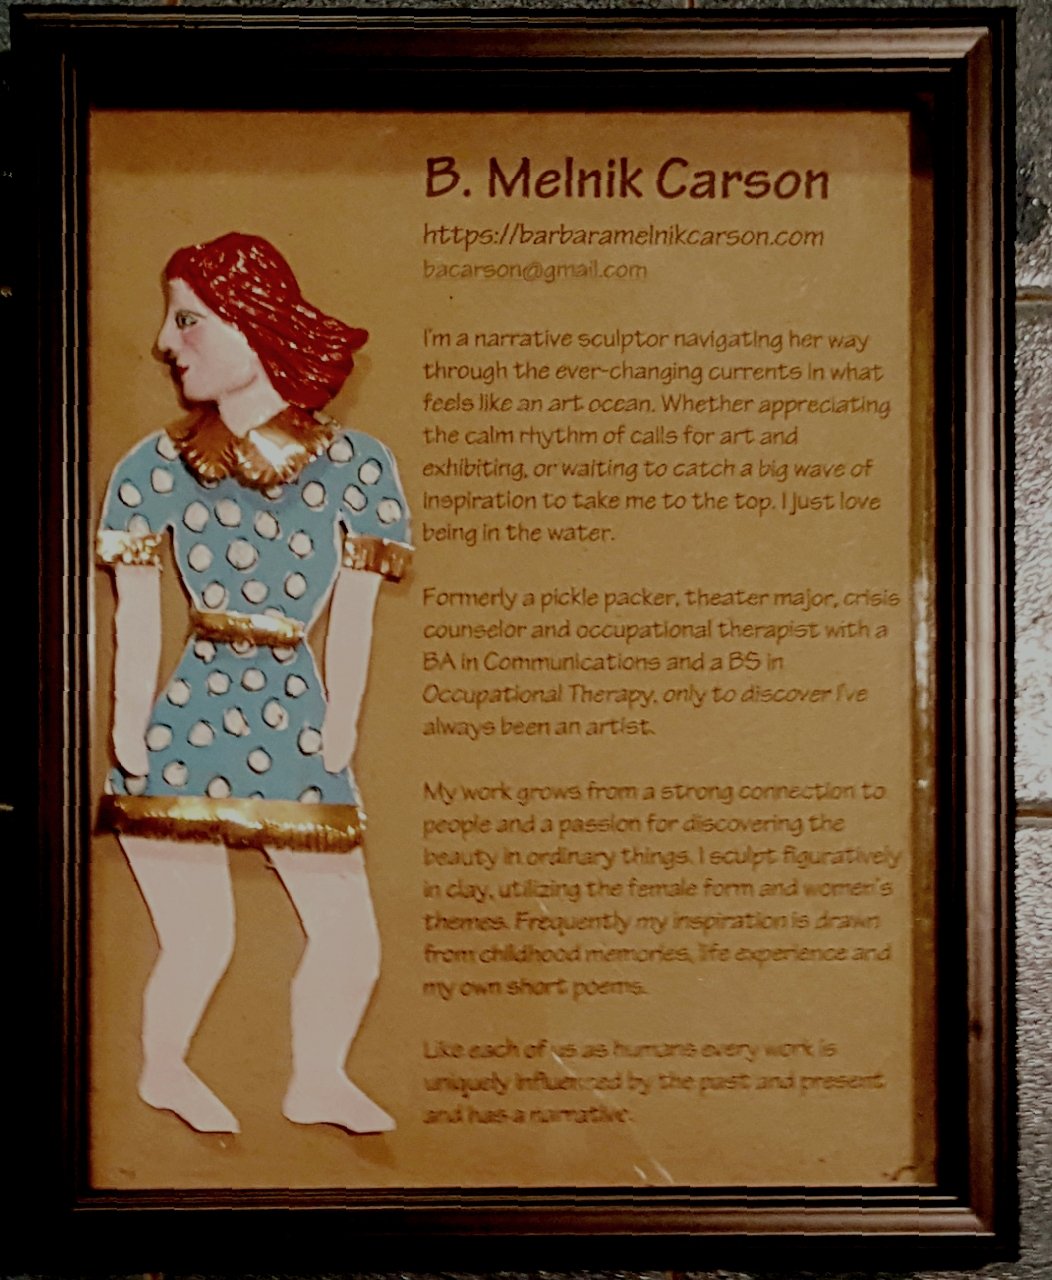 B. Melnik Carson
https://barbaramelnikcarson.com
bacarson@gmail.com
I'm a narrative sculptor navigating her way
through the ever-changing currents in what
feels like an art ocean. Whether appreciating
the calm rhythm of calls for art and
exhibiting, or waiting to catch a big wave of
inspiration to take me to the top. I just love
being in the water.
Formerly a pickle packer, theater major, crisis
counselor and occupational therapist with a
BA in Communications and a BS in
Occupational Therapy, only to discover I've
always been an artist.
My work grows from a strong connection to
people and a passion for discovering the
beauty in ordinary things. I sculpt figuratively
in clay, utilizing the female form and women's
themes. Frequently my inspiration is drawn
from childhood memories, life experience and
my own short poems.
Like each of us as humans every work is
uniquely influenced by the past and present
and has a narrative.